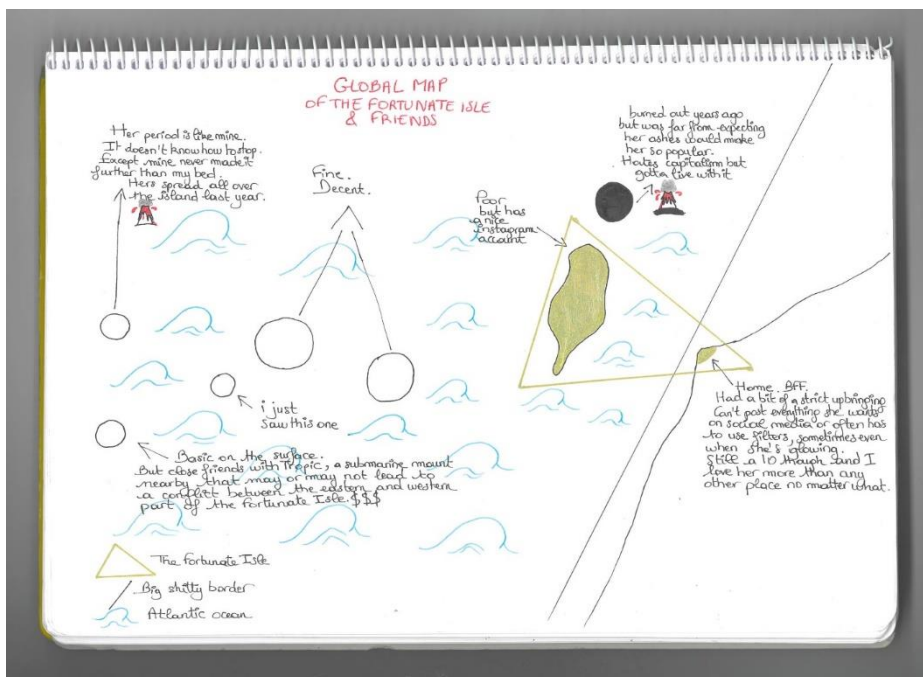 GLOBAL MAP
OF THE FORTUNATE ISLE
& FRIENDS
Her period is like mine.
It doesn't know how to stop.
Except mine never made it
further than my bed.
Hers spread all over
the island last year.
Fine.
Decent.
Poor
but has
a nice
instagram
account
burned out years ago
but was far from expecting
her ashes would make
her so popular.
Hates capitalism but
gotta live with it
i just
saw this one
Basic on the surface.
But close friends with Tropic, a submarine mount
nearby that may or may not lead to
a conflict between the eastern and western
part of the fortunate Isle. $$$
Home. BFF.
Had a bit of a strict upbringing
Can't post everything she wants
on social media or often has
to use filters, sometimes even
when she's glowing.
Still a 10 though and I
love her more than any
other place no matter what.
The fortunate Isle
Big shitty border
Atlantic ocean